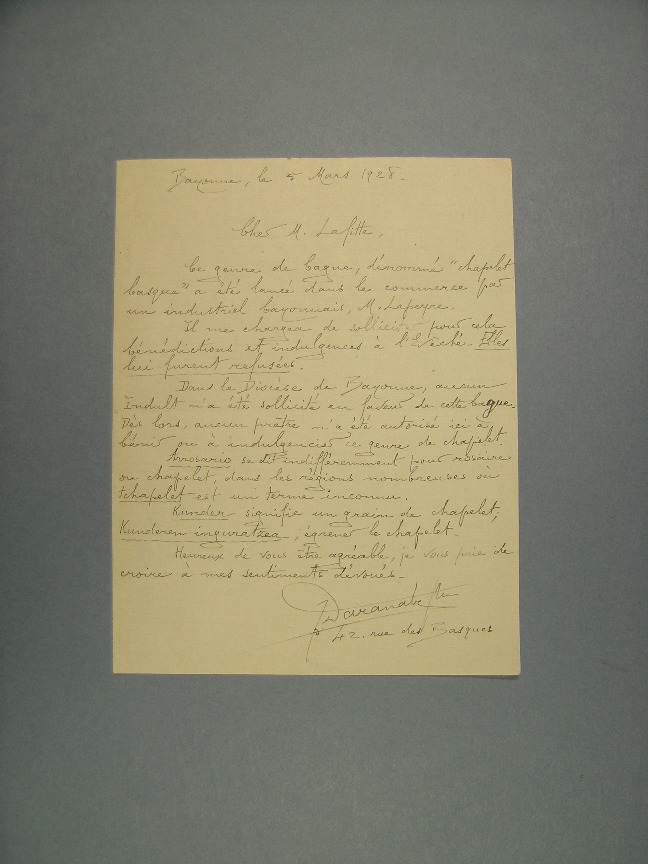 Bayonne, le 5 Mars 1928.
Cher M. Lafitte,
Ce genre de bague, dénommé "chapelet
basque" a été lancé dans le commerce par
un industriel bayonnais, M. Lapeyre.
Il me chargea de solliciter pour cela
bénédictions et indulgences à l'Evêché. Elles
lui furent refusées.
Dans le Diocèse de Bayonne, aucun
Indult n'a été sollicité en faveur de cette bague.
Dès lors, aucun prêtre n'a été autorisé ici à
bénir ou à indulgencier ce genre de chapelet.
Arrosario se dit indifféremment pour rosaire
ou chapelet, dans les régions nombreuses où
tchapelet est un terme inconnu.
Kunder signifie un grain de chapelet,
Kunderen inguratzea, égrener le chapelet.
Heureux de vous être agréable, je vous prie de
croire à mes sentiments dévoués.
Daranatz
42. rue des Basques